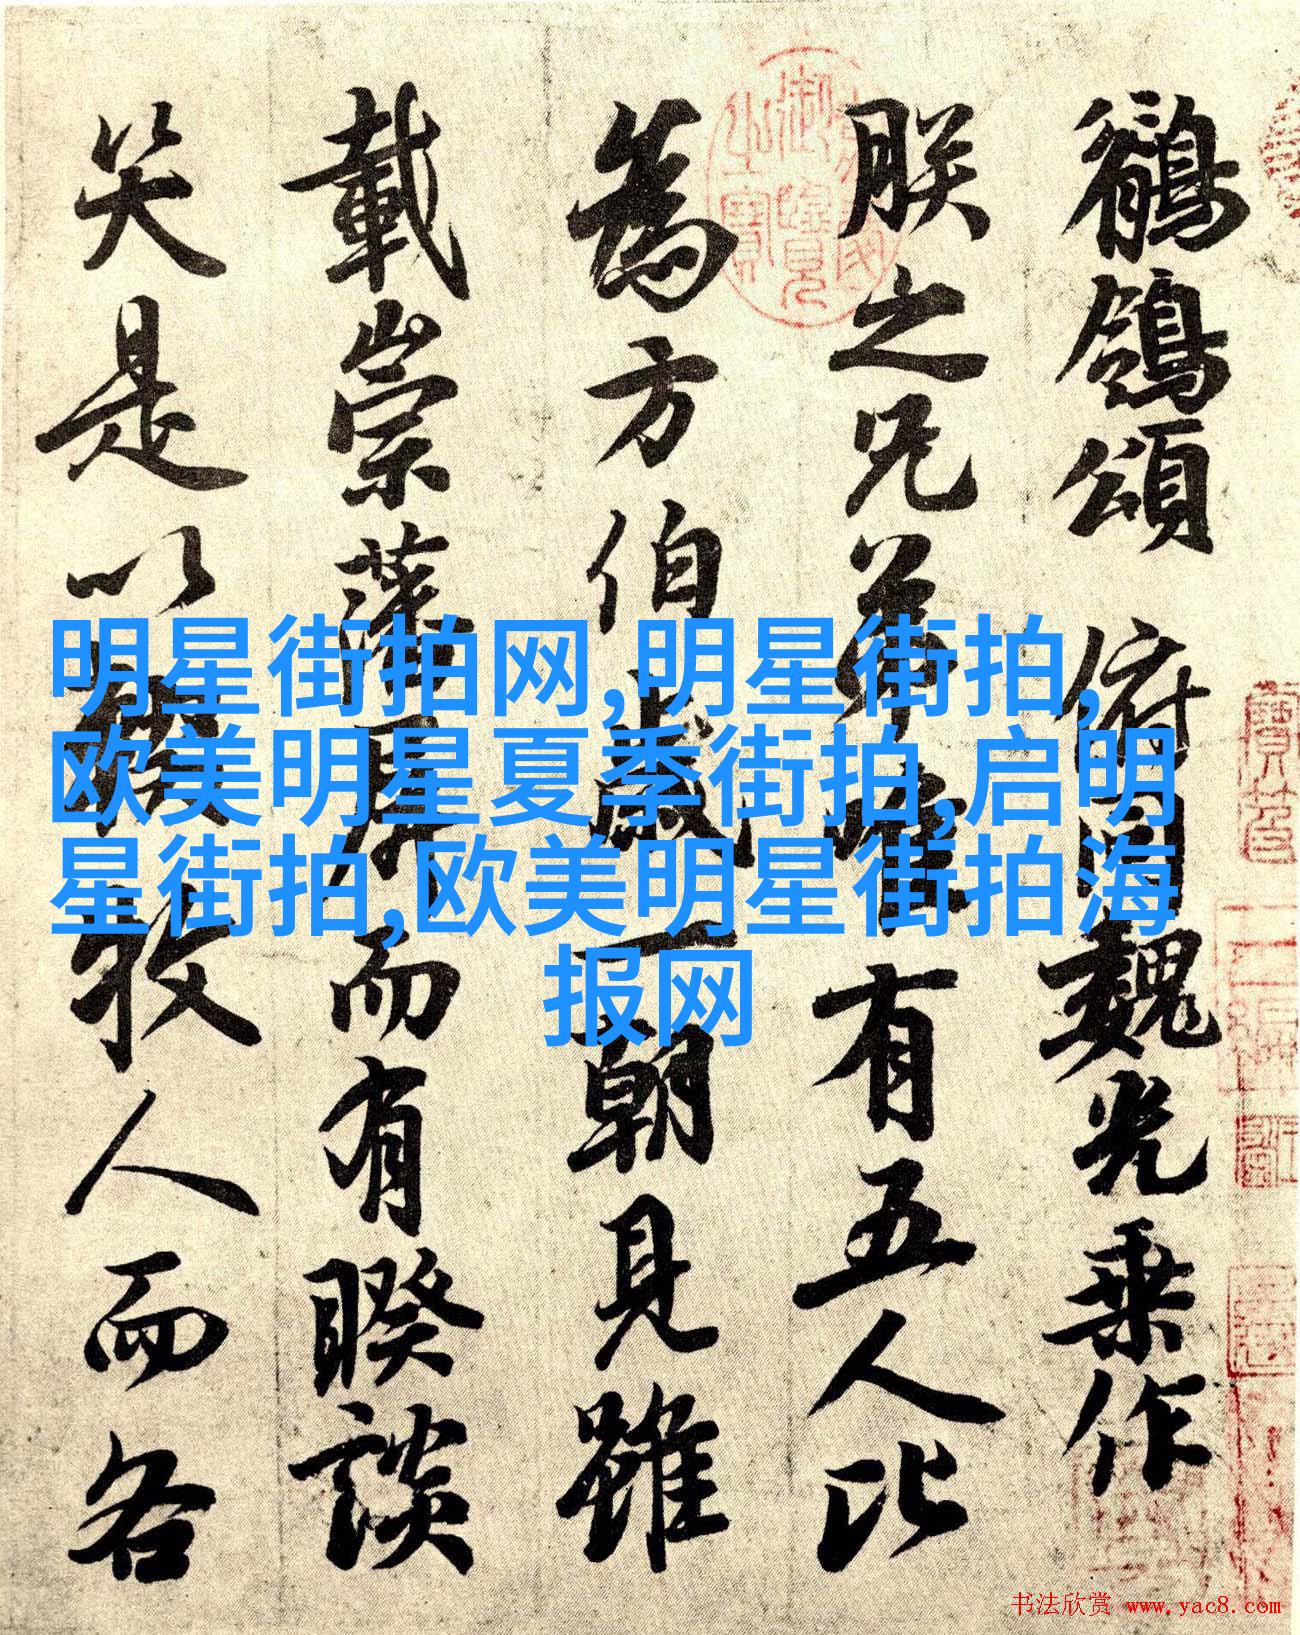 鶺鴒頌 俯同魏光乘作
朕之兄弟唯有五人比
為方伯歲一朝見雖
載崇藩屏而有睽談
笑是以輟牧人而各
明星街拍网,明星街拍,
欧美明星夏季街拍,启明
星街拍,欧美明星街拍海
报网
书法欣赏 www.yac8.com